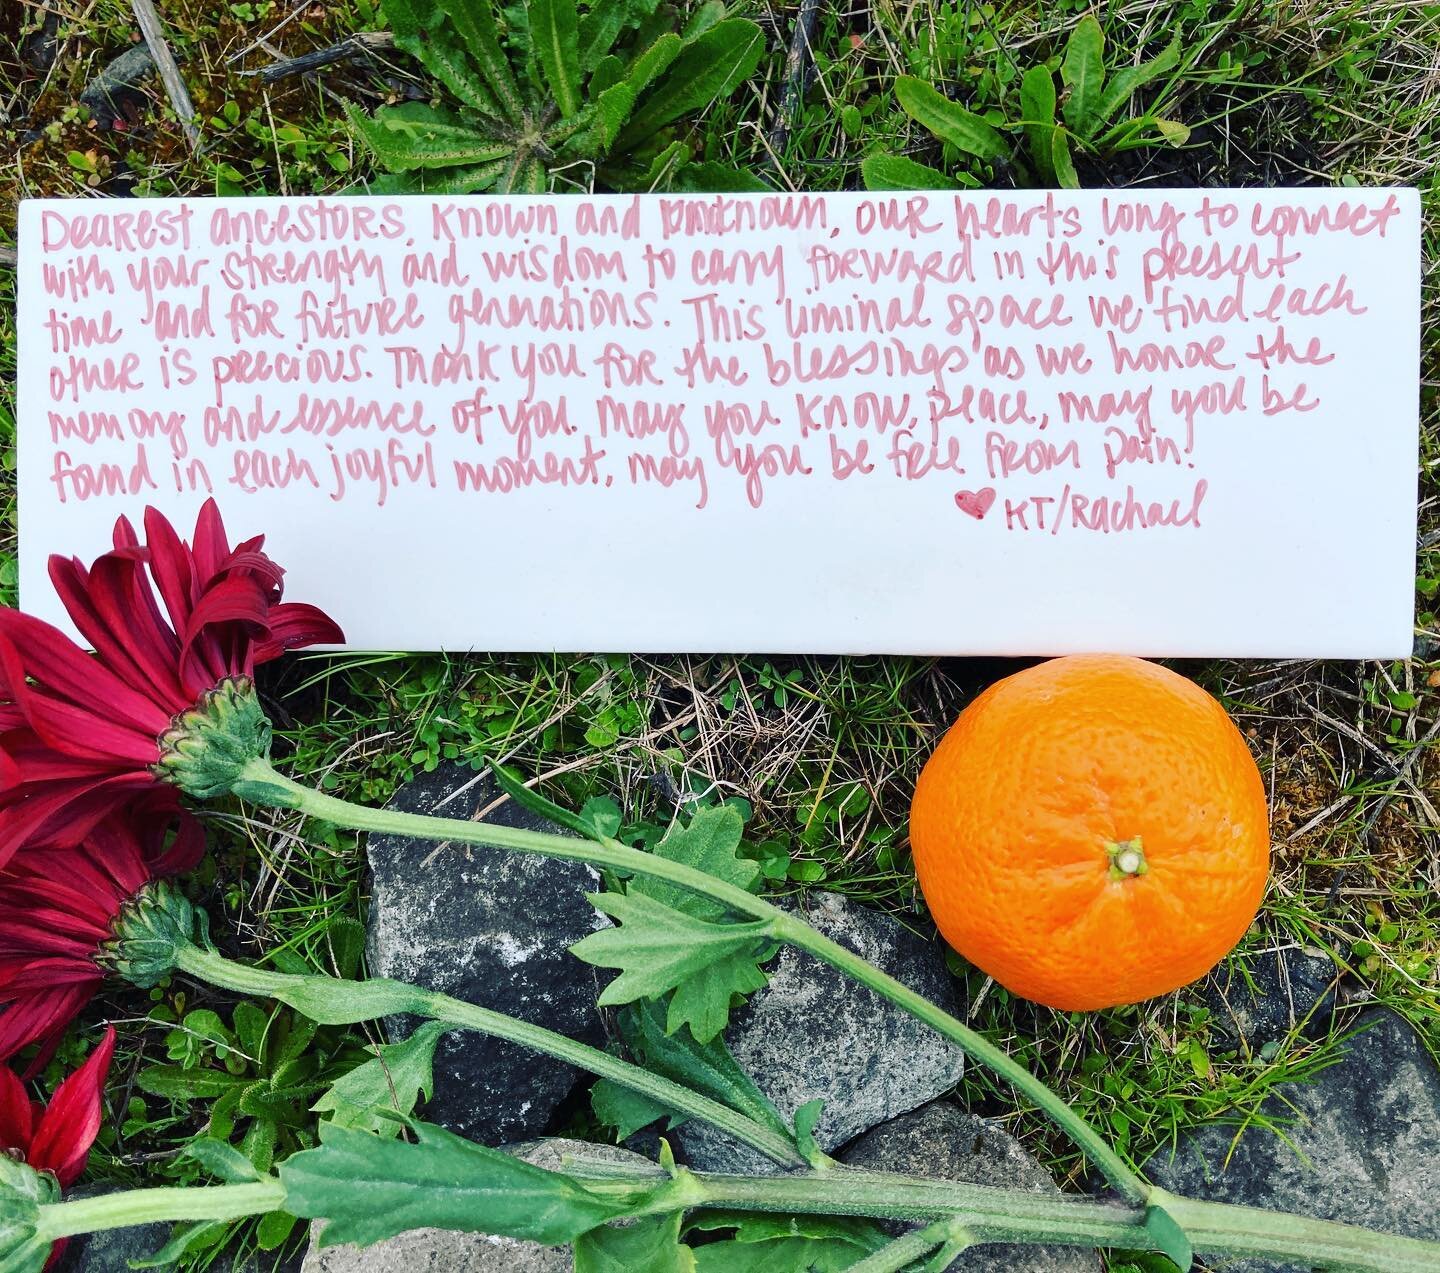 Dearest ancestors, known and unknown, our hearts long to connect
with your strength and wisdom to carry forward in this present
time and for future gennations. This liminal space we find each
other is precious. Thank you for the blessings as we honor the
memory and essence of you. May you know, peace, may you be
found in each joyful moment, may you be free from pain!
♥ KT/Rachael